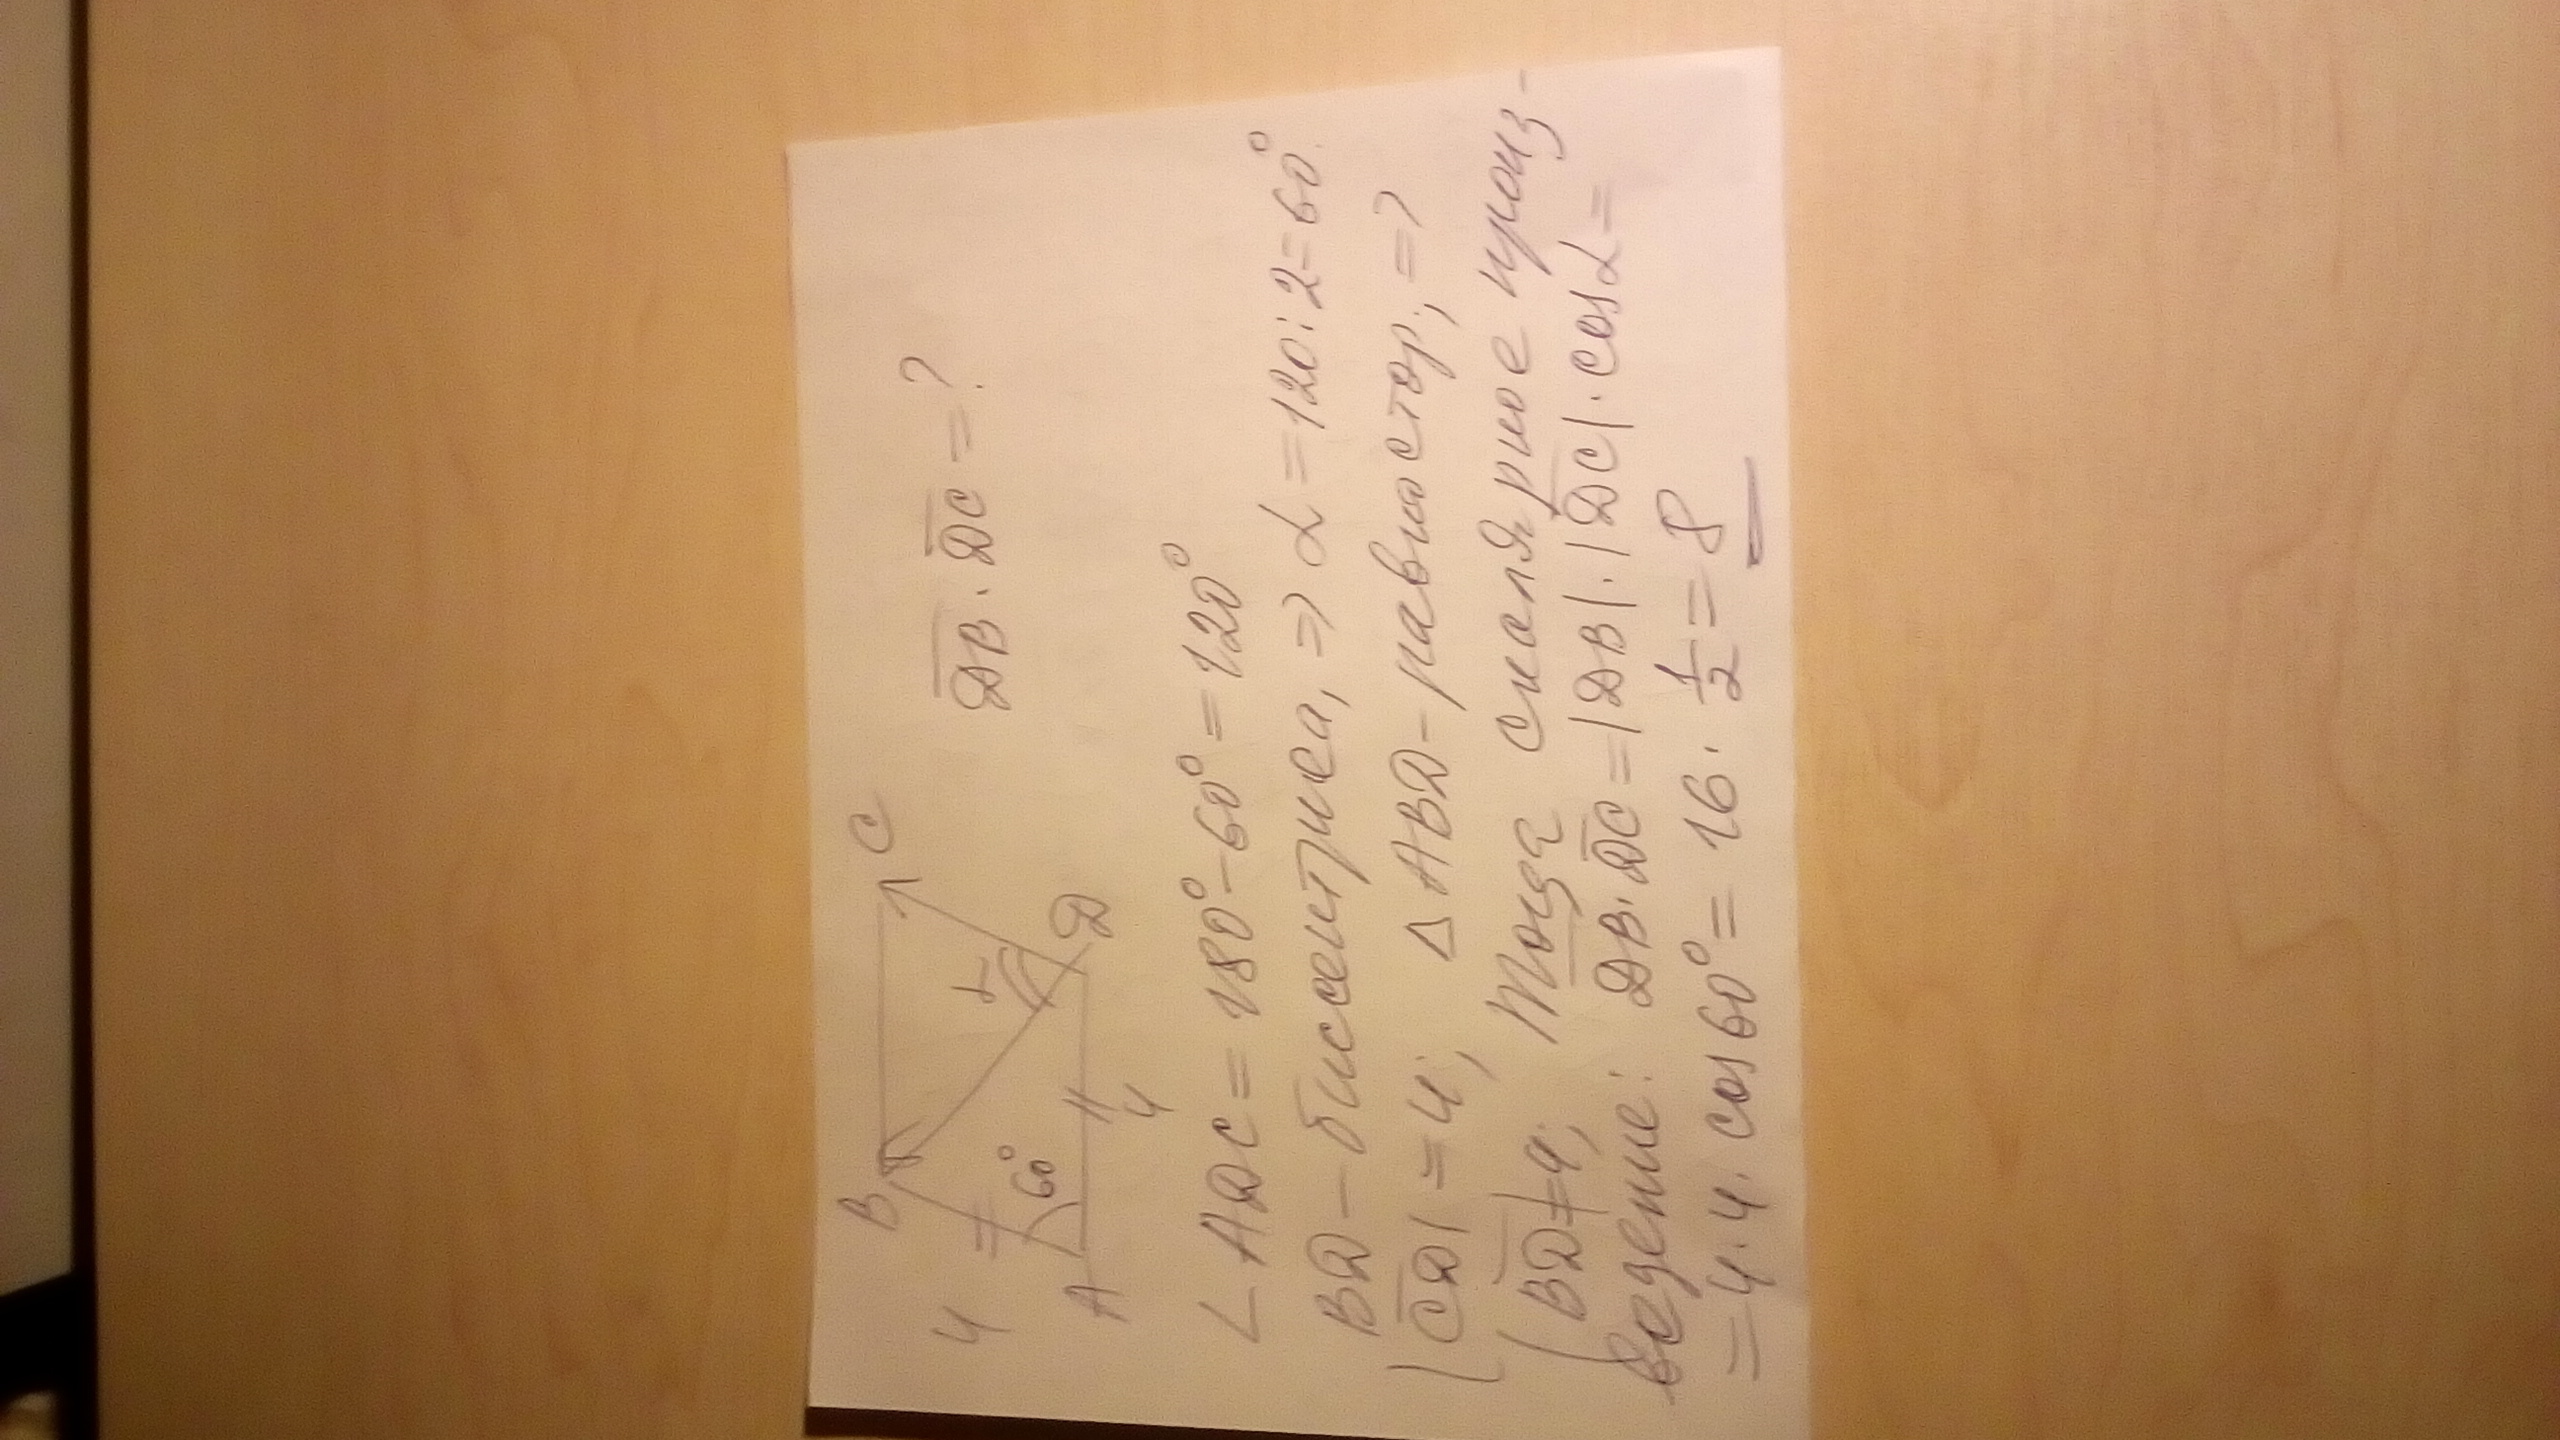 B C
4 60° α D̅B̅ · D̅C̅ = ?
A 4 D
∠ ADC = 180° - 60° = 120°
BD - биссектриса, => α = 120 : 2 = 60°.
|C̅D̅| = 4; △ ABD - равностор; =>
|B̅D̅| = 4; Тогда скалярное произ-
ведение: D̅B̅ · D̅C̅ = |D̅B̅| · |D̅C̅| · cos α =
= 4 · 4 · cos 60° = 16 · 1/2 = 8